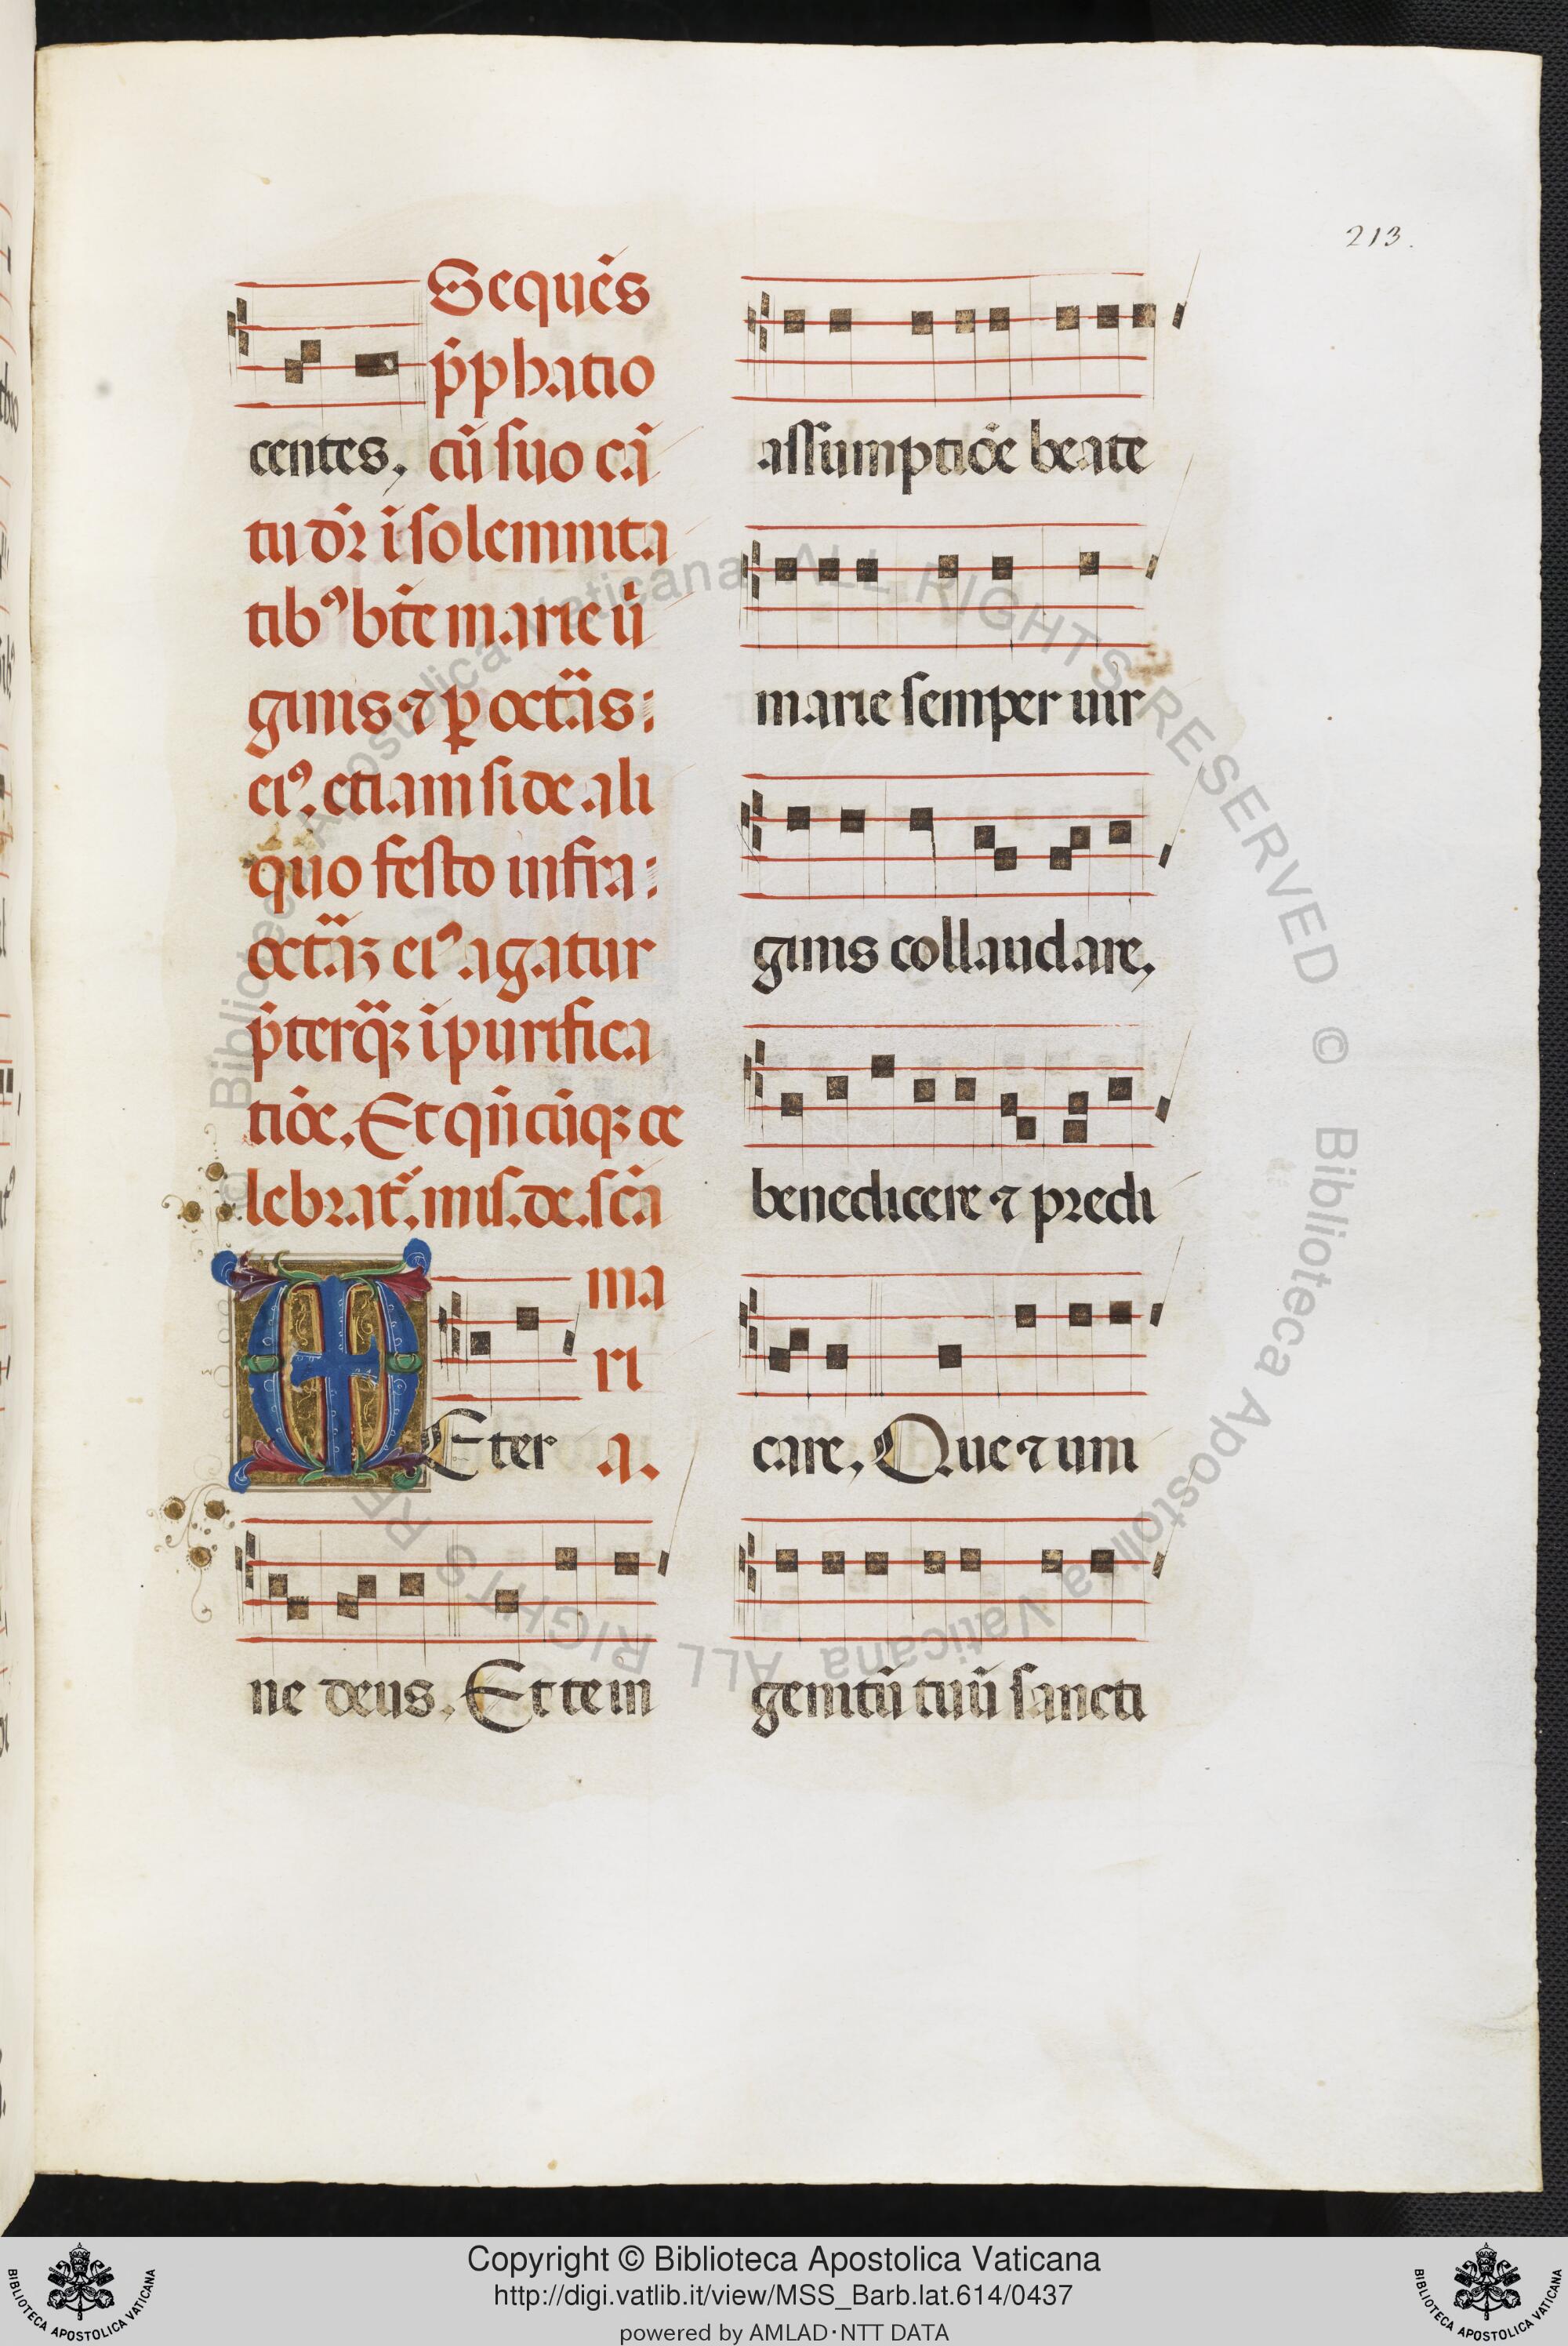 213.
Sequẽs
p̃phatio
centes, cũ suo cã
tu dr̃ ĩ solemnita
tibꝰ bt̃e marie ũ
ginis ⁊ ꝑ octãs:
eiꝰ. etiam si de ali
quo festo infra:
octãꝫ eiꝰ agatur
p̃terq̃ꝫ ĩ purifica
tiõe. Et qñcũqꝫ ce
lebrat᷑. mis. de. scã
ma
ri
Eter a.
ne deus. Et te in
assumptiõe beate
marie semper uir
ginis collaudare,
benedicere ⁊ predi
care. Que ⁊ uni
genitũ tuũ sancti
© Biblioteca Apostolica Vaticana ALL RIGHTS RESERVED © Biblioteca Apostolica Vaticana ALL RIGHTS RE
Copyright © Biblioteca Apostolica Vaticana
http://digi.vatlib.it/view/MSS_Barb.lat.614/0437
powered by AMLAD·NTT DATA
BIBLIOTECA APOSTOLICA VATICANA
BIBLIOTECA APOSTOLICA VATICANA